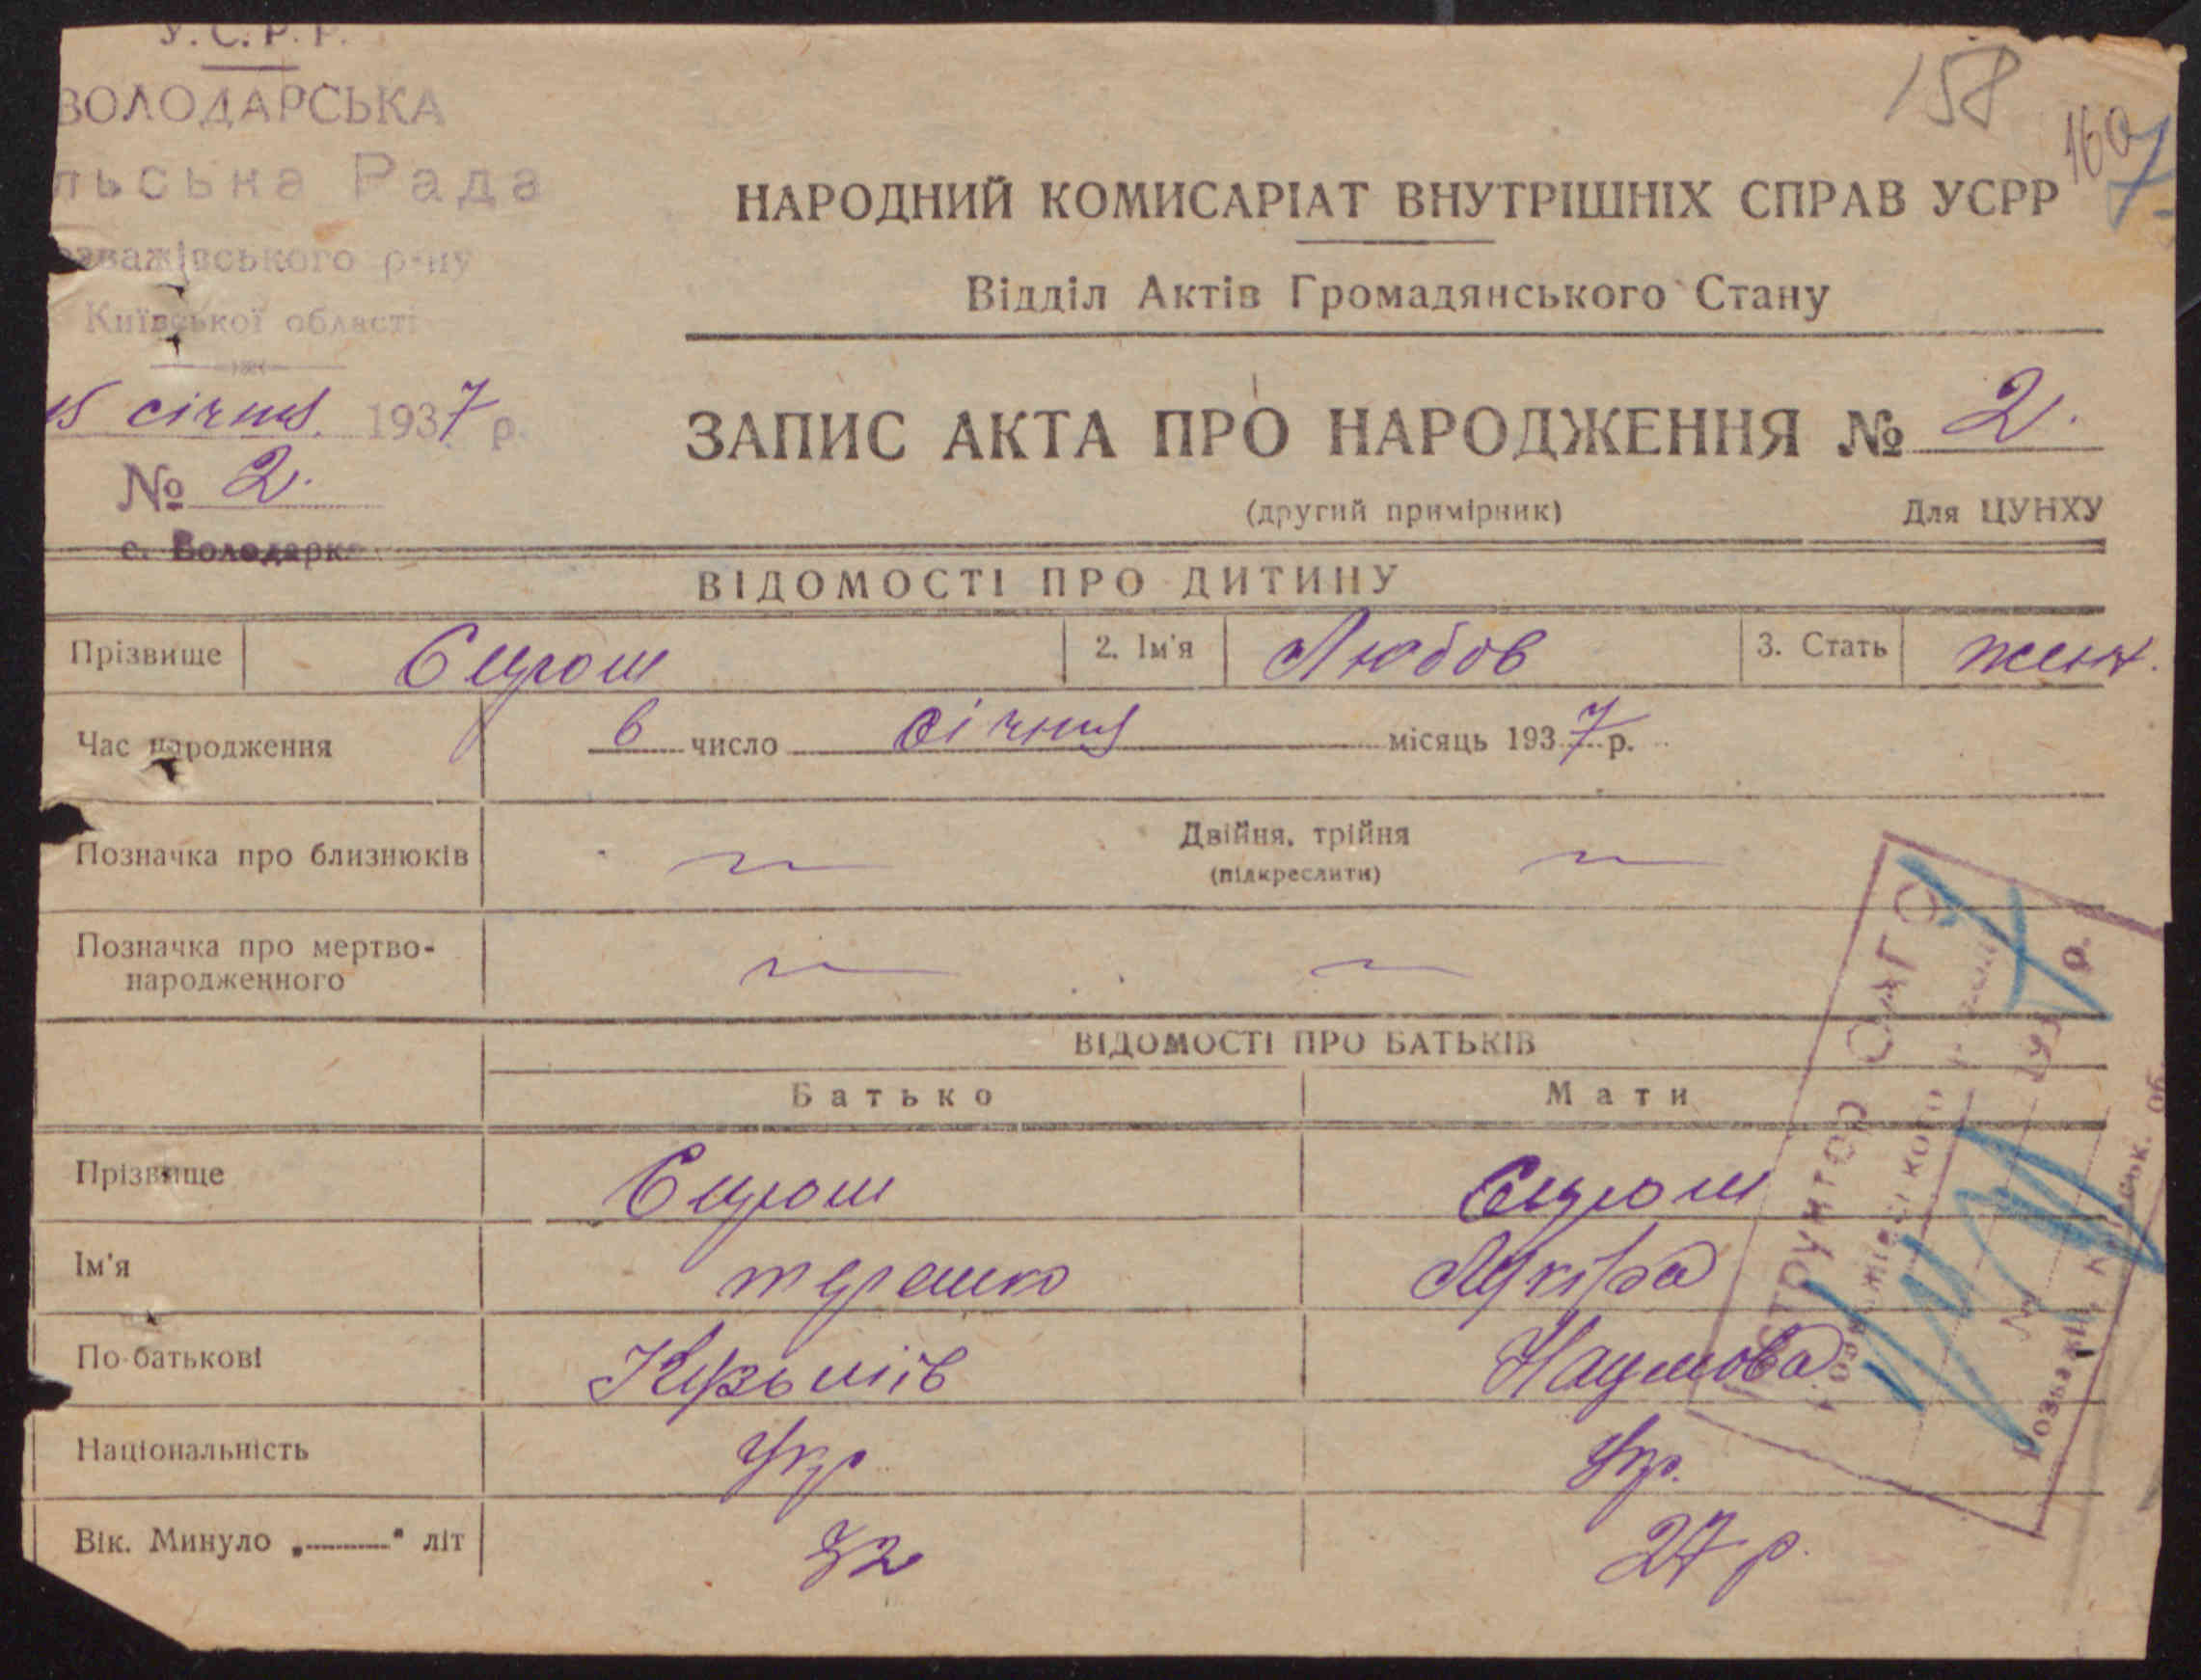 У.С.Р.Р.
ВОЛОДАРСЬКА
льська Рада
зважівського р-ну
Київської області
15 січня 1937 р.
№ 2.
с. Володарка
158
160
7
НАРОДНИЙ КОМИСАРІАТ ВНУТРІШНІХ СПРАВ УСРР
Відділ Актів Громадянського Стану
ЗАПИС АКТА ПРО НАРОДЖЕННЯ № 2.
(другий примірник) Для ЦУНХУ
ВІДОМОСТІ ПРО ДИТИНУ
Прізвище 2. Ім'я Любов 3. Стать жен.
Час народження 6 число січня місяць 1937 р.
Позначка про близнюків Двійня, трійня
(підкреслити)
Позначка про мертво-
народженного
ВІДОМОСТІ ПРО БАТЬКІВ
Батько Мати
Прізвище
Ім'я
По-батькові Кузьміїв Наумова
Національність Укр Укр.
Вік. Минуло „ “ літ 32 27 р.
Інструктор ОАГС
193 р.
№